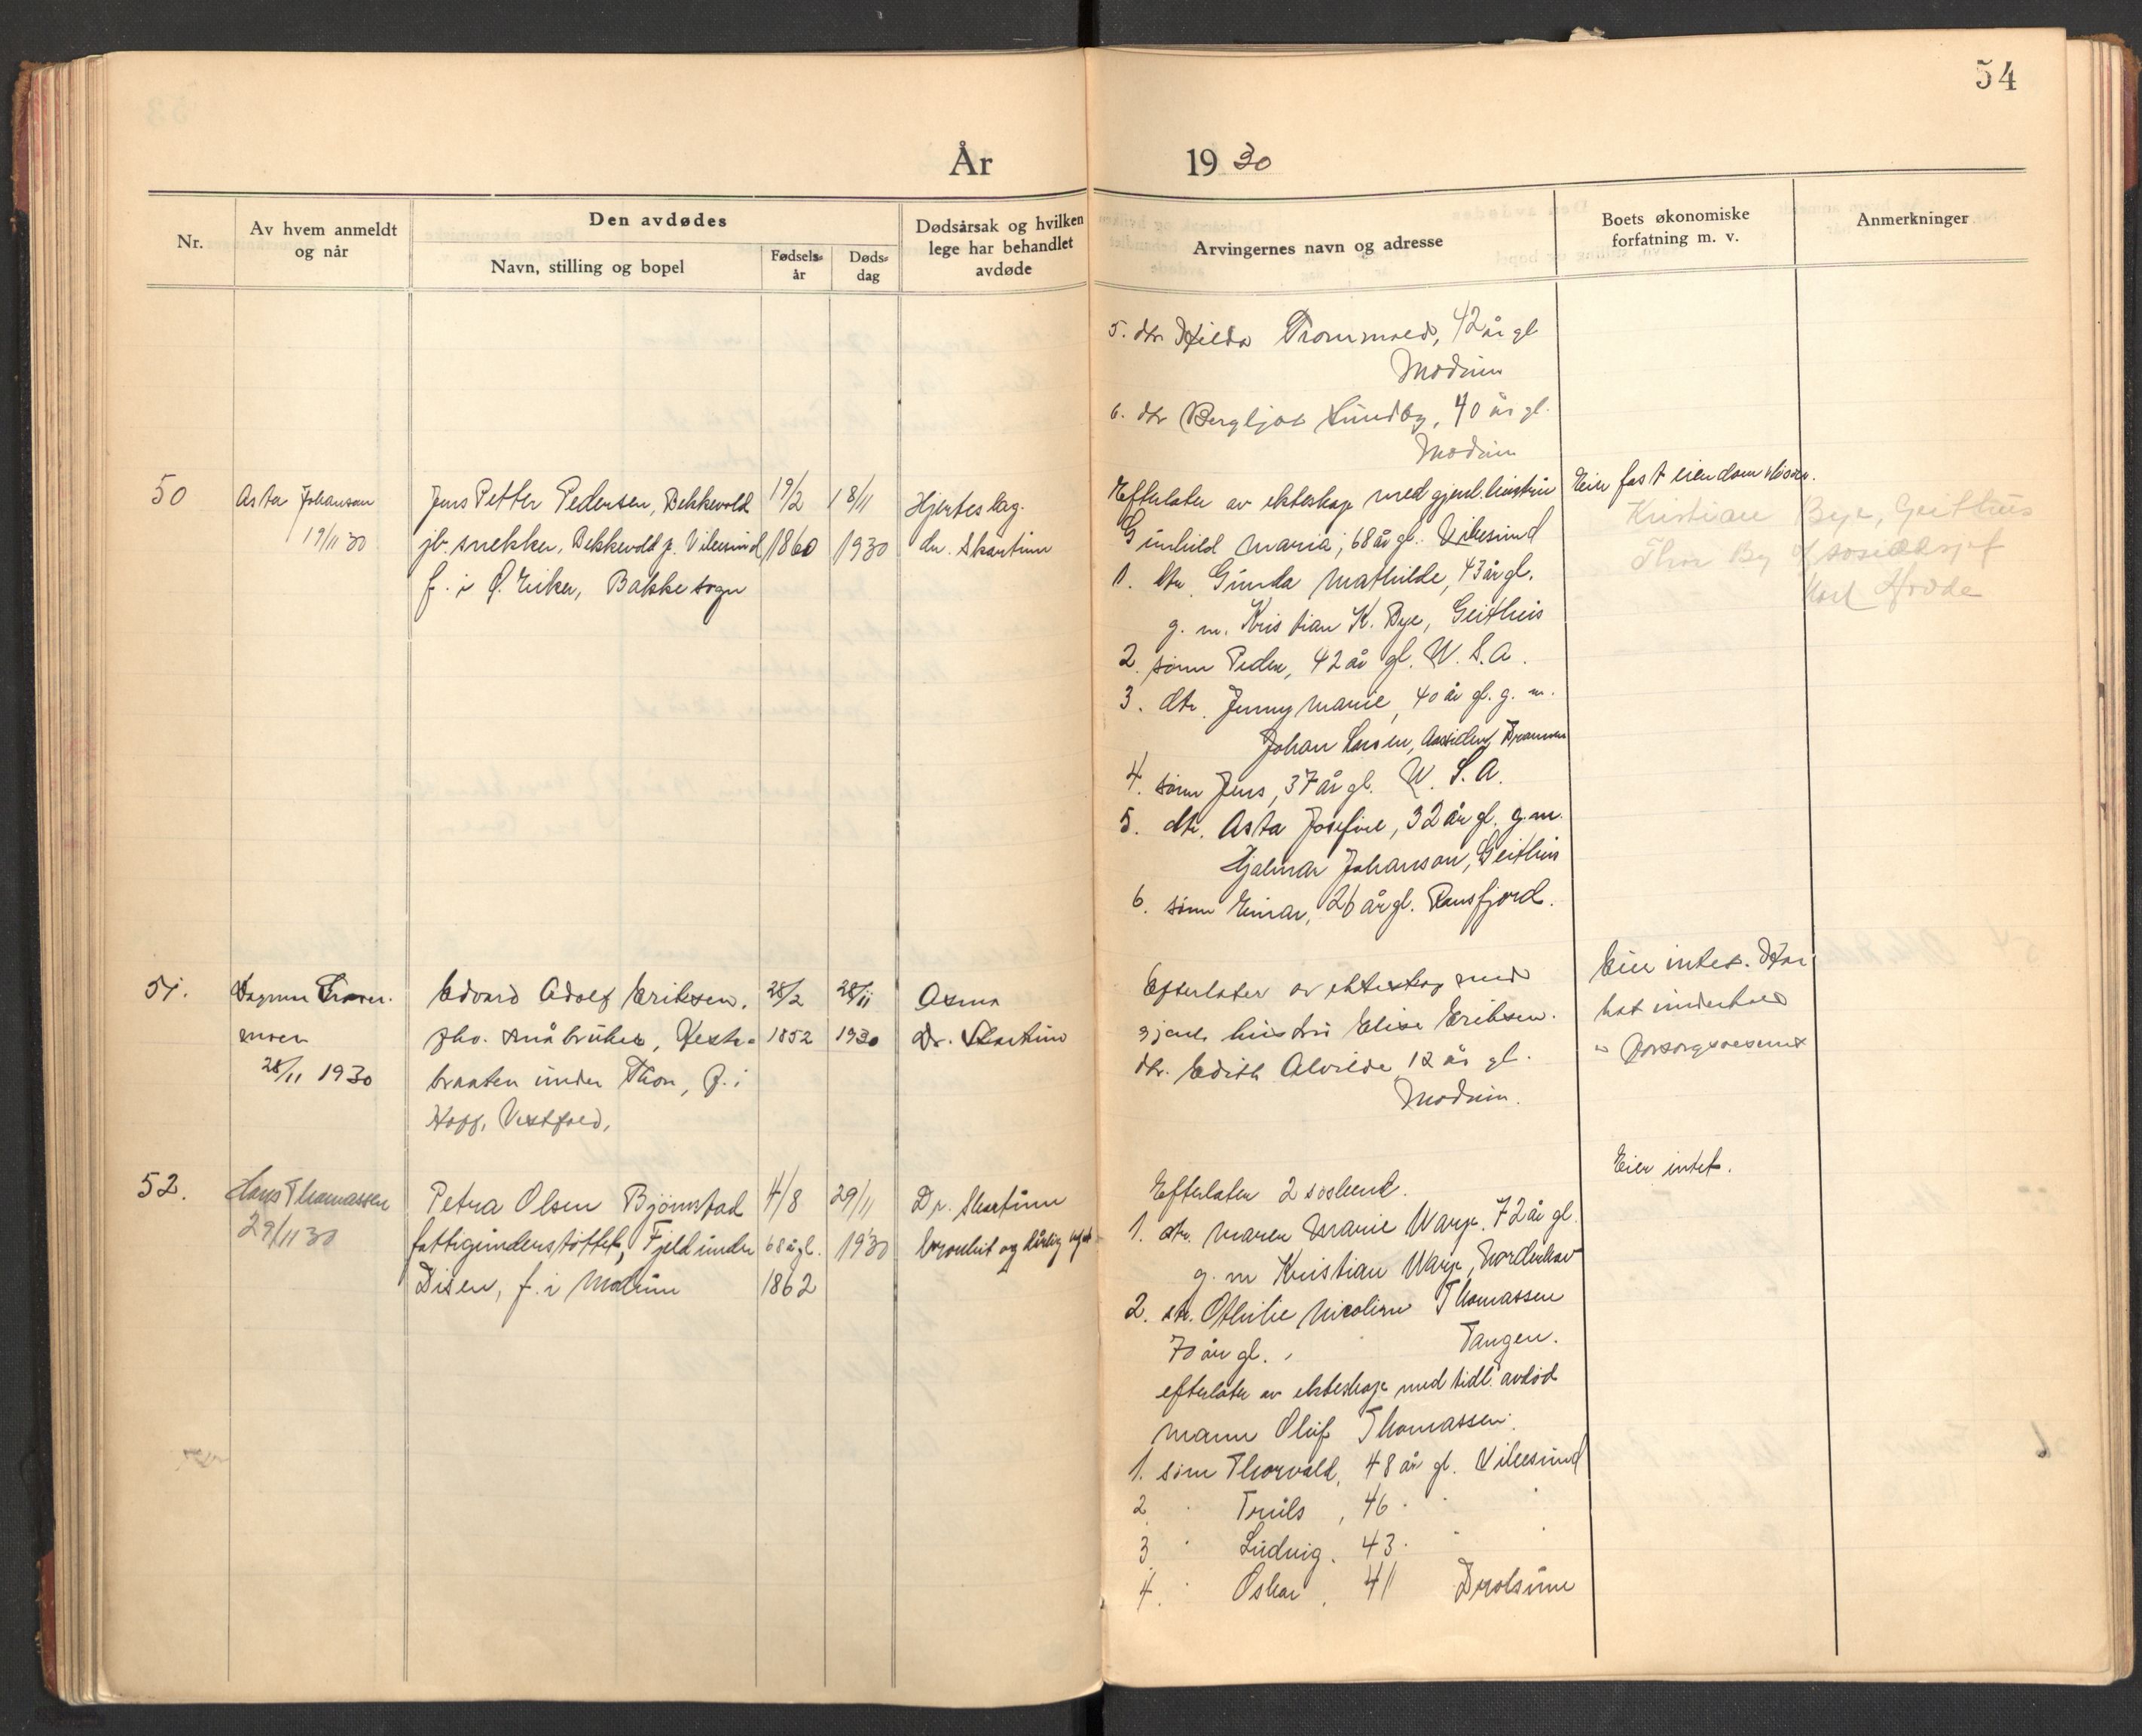 54
År 1930
Nr.
Av hvem anmeldt
og når
Den avdødes
Navn, stilling og bopel
Fødsels-
år
Døds-
dag
Dødsårsak og hvilken
lege har behandlet
avdøde
Arvingernes navn og adresse
Boets økonomiske
forfatning m. v.
Anmerkninger
5. dtr Hilda Trommald, 42 år gl
Modum
6. dtr Bergljot Sundby, 40 år gl.
Modum
50
Asta Johansen
19/11 30
Jens Petter Pedersen, Bekkevold
fh. snekker, Bekkevold p. Vikesund
f. i Ø. Eiker, Bakke sogn
19/2
1860
18/11
1930
Hjerteslag.
dr. Skartum
Efterlater av ekteskap med gjenl. hustru
Gunhild Maria, 68 år gl. Vikesund
1. dtr. Gunda Mathilde, 43 år gl.
g. m. Kristian K. Bye, Geithus
2. sønn Peder, 42 år gl. U. S. A.
3. dtr. Jenny Marie, 40 år gl. g. m.
Johan Larsen, Aassiden, Drammen
4. sønn Jens, 37 år gl. U. S. A.
5. dtr. Asta Josefine, 32 år gl. g. m.
Hjalmar Johanson, Geithus
6. sønn Einar, 26 år gl. Ransfjord.
Eier fast eiendom
Kristian Bye, Geithus
Thor By
Karl Hovde
51.
moen
28/11 1930
Edvard Adolf Eriksen,
fhv. småbruker,
braaten under Thon, f. i
Hoff, Vestfold,
28/2
1852
28/11
1930
Asma
Dr. Skartum
Efterlater av ekteskap med
gjenl. hustru Elise Eriksen.
dtr. Edith Alvilde 12 år gl.
Modum.
Eier intet. Har
hat underhold
av Forsorgsvesenet
52.
Hans Thomassen
29/11 30
Petra Olsen Bjørnstad
fattigunderstøttet, Fjeld under
Disen, f. i Modum
4/8
68 å gl.
1862
29/11
1930
Dr. Skartum
bronkit og dårlig hjerte
Efterlater 2 søskend.
1. str. Maren Marie Warp. 72 år gl.
g. m Kristian Warp, Norderhov
2. str. Othilie Nicoline Thomassen
70 år gl. Tangen.
efterlater av ekteskap med tidl. avdød
mann Oluf Thomassen.
1. sønn Thorvald, 48 år gl. Vikesund
2 " Truls, 46 " "
3 " Ludvig. 43. " "
4. " Oskar, 41 Drolsum
Eier intet.